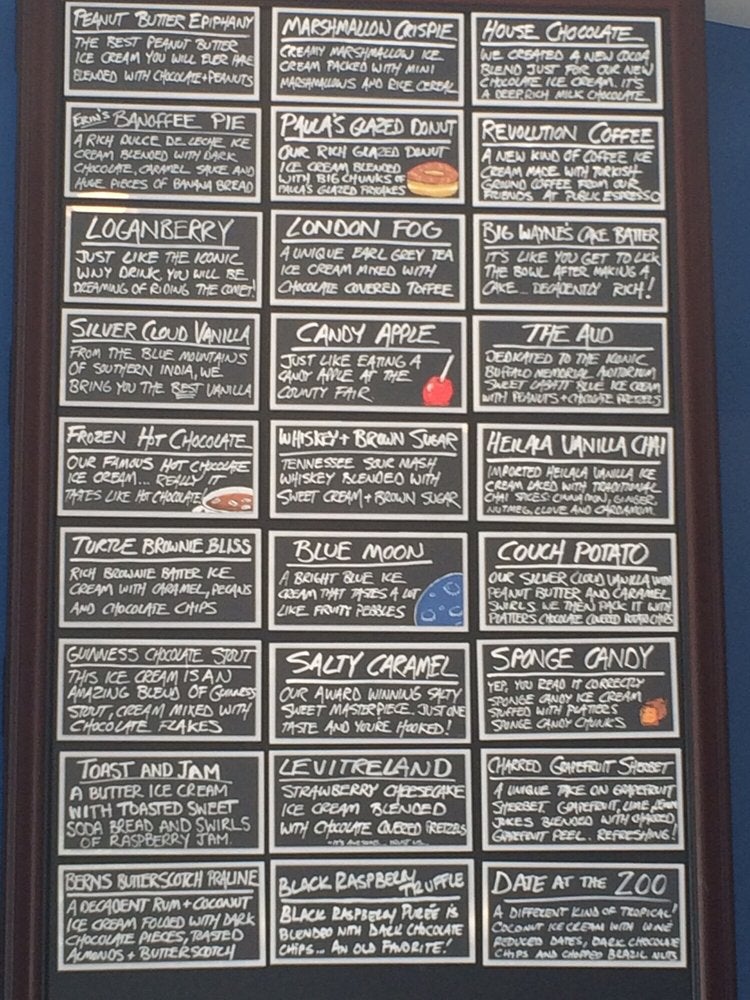 PEANUT BUTTER EPIPHANY
THE BEST PEANUT BUTTER
ICE CREAM YOU WILL EVER HAVE
BLENDED WITH CHOCOLATE + PEANUTS
MARSHMALLOW CRISPIE
CREAMY MARSHMALLOW ICE
CREAM PACKED WITH MINI
MARSHMALLOWS AND RICE CEREAL
HOUSE CHOCOLATE
WE CREATED A NEW COCOA
BLEND JUST FOR OUR NEW
CHOCOLATE ICE CREAM. IT'S
A DEEP, RICH MILK CHOCOLATE
ERIN'S BANOFFEE PIE
A RICH DULCE DE LECHE ICE
CREAM BLENDED WITH DARK
CHOCOLATE, CARAMEL SAUCE AND
HUGE PIECES OF BANANA BREAD
PAULA'S GLAZED DONUT
OUR RICH GLAZED DONUT
ICE CREAM BLENDED
WITH BIG CHUNKS OF
PAULA'S GLAZED FRYCAKES
REVOLUTION COFFEE
A NEW KIND OF COFFEE ICE
CREAM MADE WITH TURKISH
GROUND COFFEE FROM OUR
FRIENDS AT PUBLIC ESPRESSO
LOGANBERRY
JUST LIKE THE ICONIC
WNY DRINK, YOU WILL BE
DREAMING OF RIDING THE COMET!
LONDON FOG
A UNIQUE EARL GREY TEA
ICE CREAM MIXED WITH
CHOCOLATE COVERED TOFFEE
BIG WAYNE'S CAKE BATTER
IT'S LIKE YOU GET TO LICK
THE BOWL AFTER MAKING A
CAKE... DECADENTLY RICH!
SILVER CLOUD VANILLA
FROM THE BLUE MOUNTAINS
OF SOUTHERN INDIA, WE
BRING YOU THE BEST VANILLA
CANDY APPLE
JUST LIKE EATING A
CANDY APPLE AT THE
COUNTY FAIR
THE AUD
DEDICATED TO THE ICONIC
BUFFALO MEMORIAL AUDITORIUM
SWEET LABATT BLUE ICE CREAM
WITH PEANUTS + CHOCOLATE PRETZELS
FROZEN HOT CHOCOLATE
OUR FAMOUS HOT CHOCOLATE
ICE CREAM... REALLY IT
TASTES LIKE HOT CHOCOLATE
WHISKEY + BROWN SUGAR
TENNESSEE SOUR MASH
WHISKEY BLENDED WITH
SWEET CREAM + BROWN SUGAR
HEILALA VANILLA CHAI
IMPORTED HEILALA VANILLA ICE
CREAM LACED WITH TRADITIONAL
CHAI SPICES: CINNAMON, GINGER,
NUTMEG, CLOVE AND CARDAMOM
TURTLE BROWNIE BLISS
RICH BROWNIE BATTER ICE
CREAM WITH CARAMEL, PECANS
AND CHOCOLATE CHIPS
BLUE MOON
A BRIGHT BLUE ICE
CREAM THAT TASTES A LOT
LIKE FRUITY PEBBLES
COUCH POTATO
OUR SILVER CLOUD VANILLA WITH
PEANUT BUTTER AND CARAMEL
SWIRLS. WE THEN PACK IT WITH
PLATTERS CHOCOLATE COVERED POTATO CHIPS
GUINNESS CHOCOLATE STOUT
THIS ICE CREAM IS AN
AMAZING BLEND OF GUINNESS
STOUT, CREAM MIXED WITH
CHOCOLATE FLAKES
SALTY CARAMEL
OUR AWARD WINNING SALTY
SWEET MASTERPIECE. JUST ONE
TASTE AND YOU'RE HOOKED!
SPONGE CANDY
YEP, YOU READ IT CORRECTLY
SPONGE CANDY ICE CREAM
STUFFED WITH PLATTERS
SPONGE CANDY CHUNKS
TOAST AND JAM
A BUTTER ICE CREAM
WITH TOASTED SWEET
SODA BREAD AND SWIRLS
OF RASPBERRY JAM.
LEVITRELAND
STRAWBERRY CHEESECAKE
ICE CREAM BLENDED
WITH CHOCOLATE COVERED PRETZELS
-IT'S AWESOME... TRUST US-
CHARRED GRAPEFRUIT SHERBET
A UNIQUE TAKE ON GRAPEFRUIT
SHERBET. GRAPEFRUIT, LIME, LEMON
JUICES BLENDED WITH CHARRED
GRAPEFRUIT PEEL. REFRESHING!
BERNS BUTTERSCOTCH PRALINE
A DECADENT RUM + COCONUT
ICE CREAM FOLDED WITH DARK
CHOCOLATE PIECES, TOASTED
ALMONDS + BUTTERSCOTCH
BLACK RASPBERRY TRUFFLE
BLACK RASPBERRY PURÉE IS
BLENDED WITH DARK CHOCOLATE
CHIPS... AN OLD FAVORITE!
DATE AT THE ZOO
A DIFFERENT KIND OF TROPICAL!
COCONUT ICE CREAM WITH WINE
REDUCED DATES, DARK CHOCOLATE
CHIPS AND CHOPPED BRAZIL NUTS